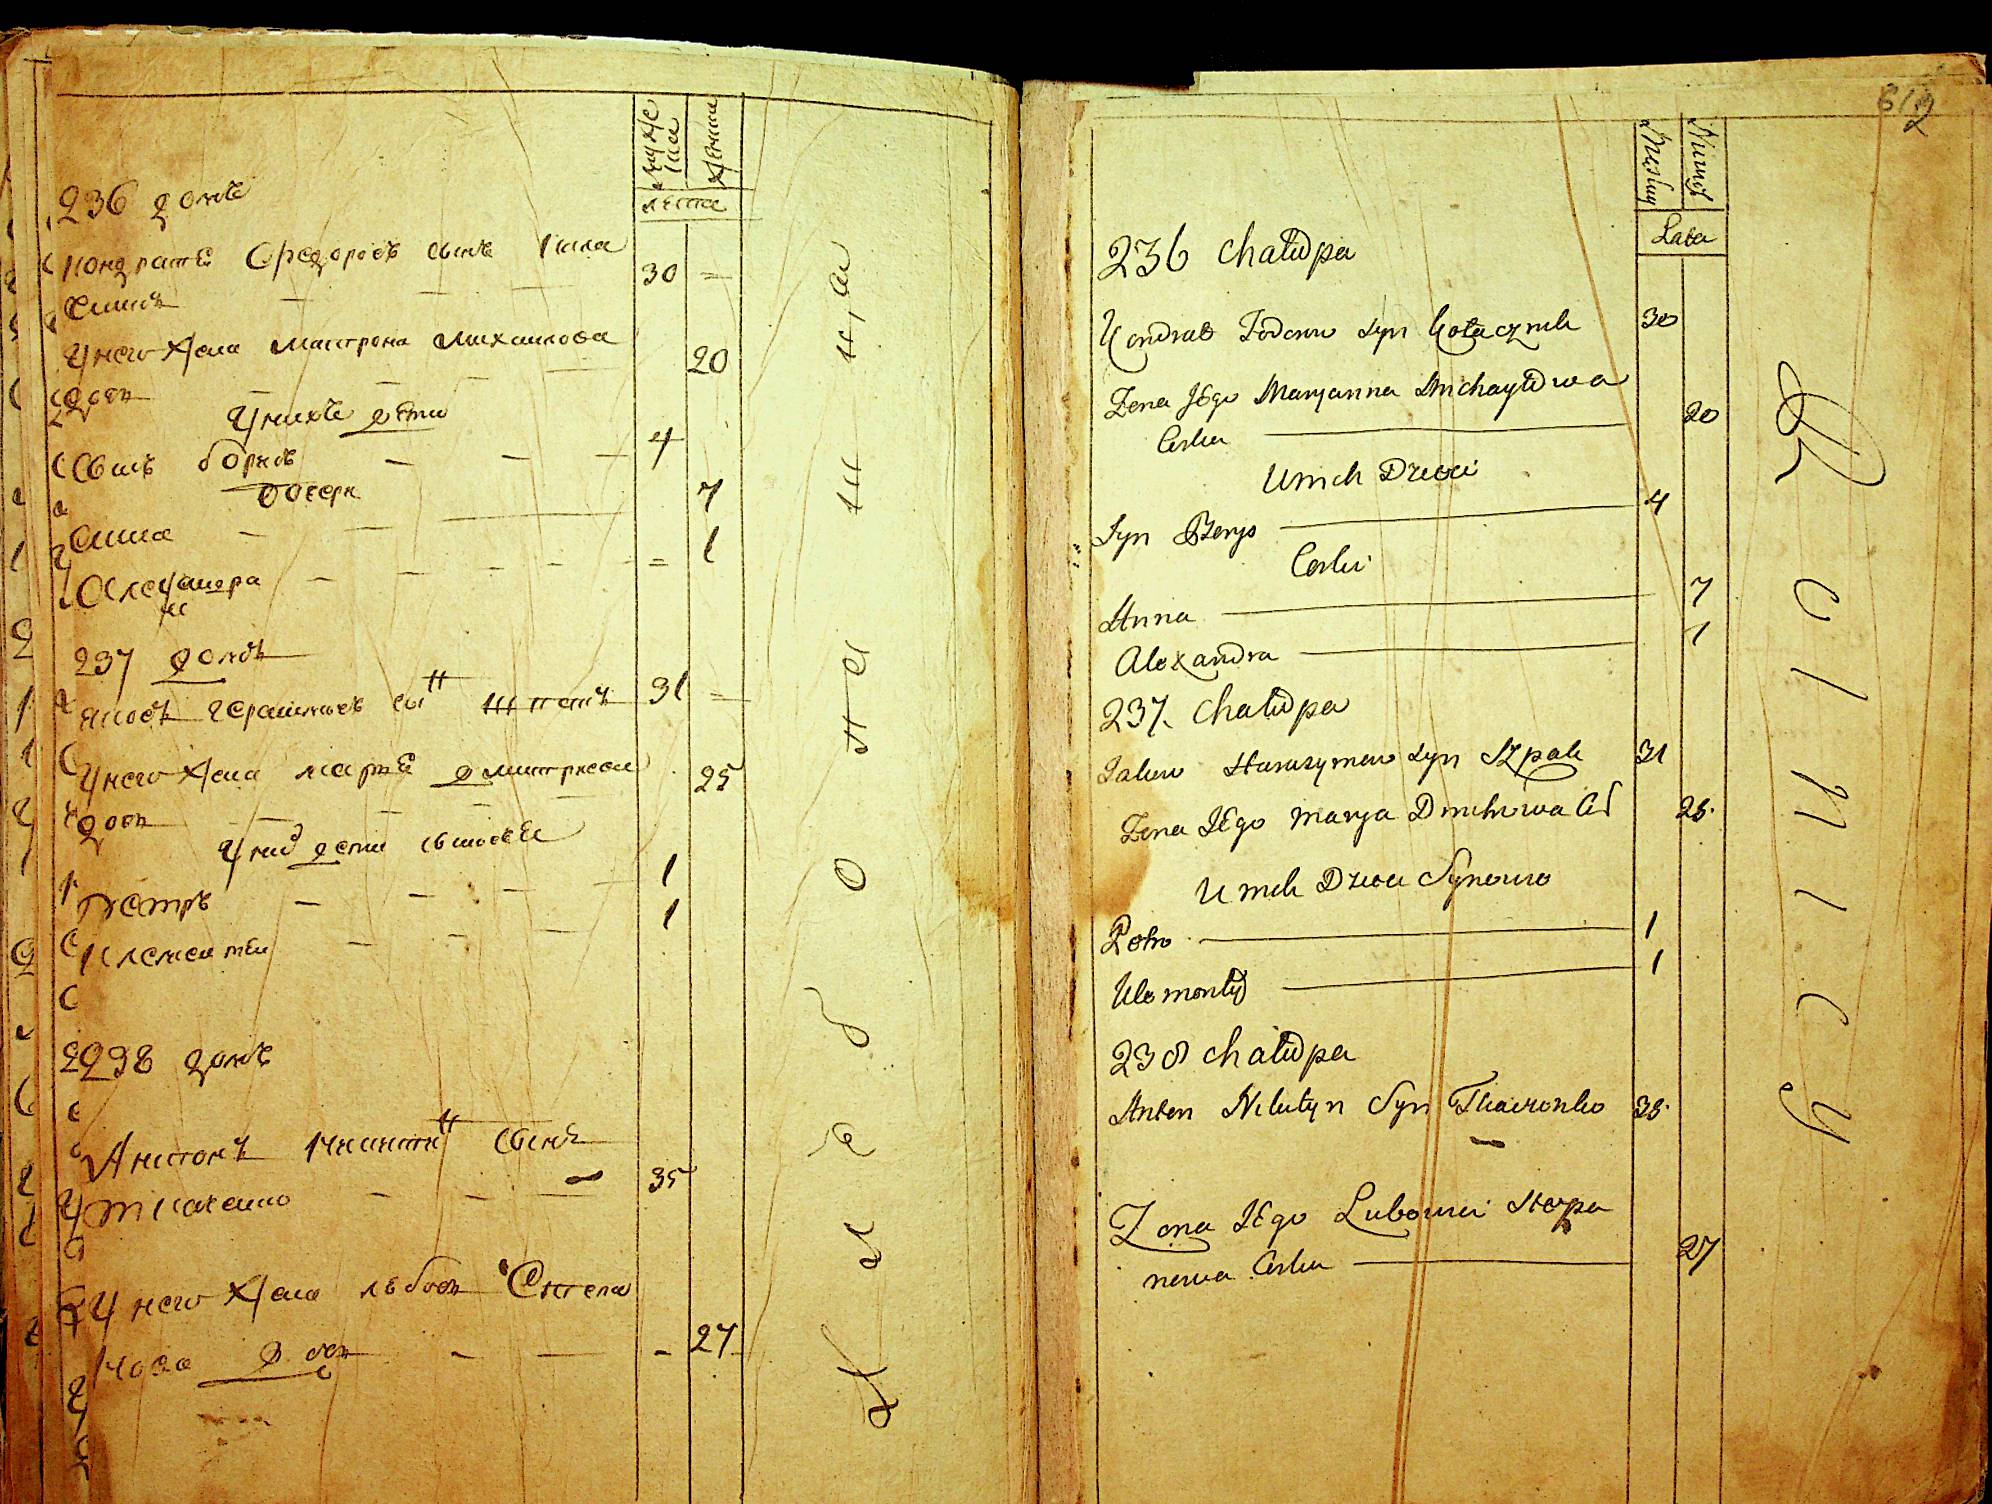 мужеска
женска
лета
236 домъ
Кондратъ Федоровъ сынъ
30
У него жена Мактрона Михаилова
дочь
20
У нихъ дети
Сынъ борисъ
4
дочери
анна
7
Александра
1
237 домъ
Яковъ Герасимовъ сынъ Шпакъ
31
У него жена марья дмитриева
дочь
25
У нихъ дети сыновья
Петръ
1
Климентей
1
238 домъ
Антонъ Никитинъ сынъ
Ткаченко
35
У него жена любовь Степа
нова дочь
27
Męskey
Żeńskey
Lata
236 Chałupa
Kondrat Fedorow Syn Kołacznik
30
Żona Jego Maryanna Michayłowa
Corka
20
U nich Dzieci
Syn Borys
4
Corki
Anna
7
Alexandra
1
237. Chałupa
Jakow Harasymow Syn Szpak
31
Żona Jego Marya Dmitrowa
25.
U nich Dzieci Synowie
Petro
1
Klementy
1
238 Chałupa
Anton Nikityn Syn Tkaczenko
35.
Żona Jego Lubowia Stepa
nowa Corka
27
Rolnicy